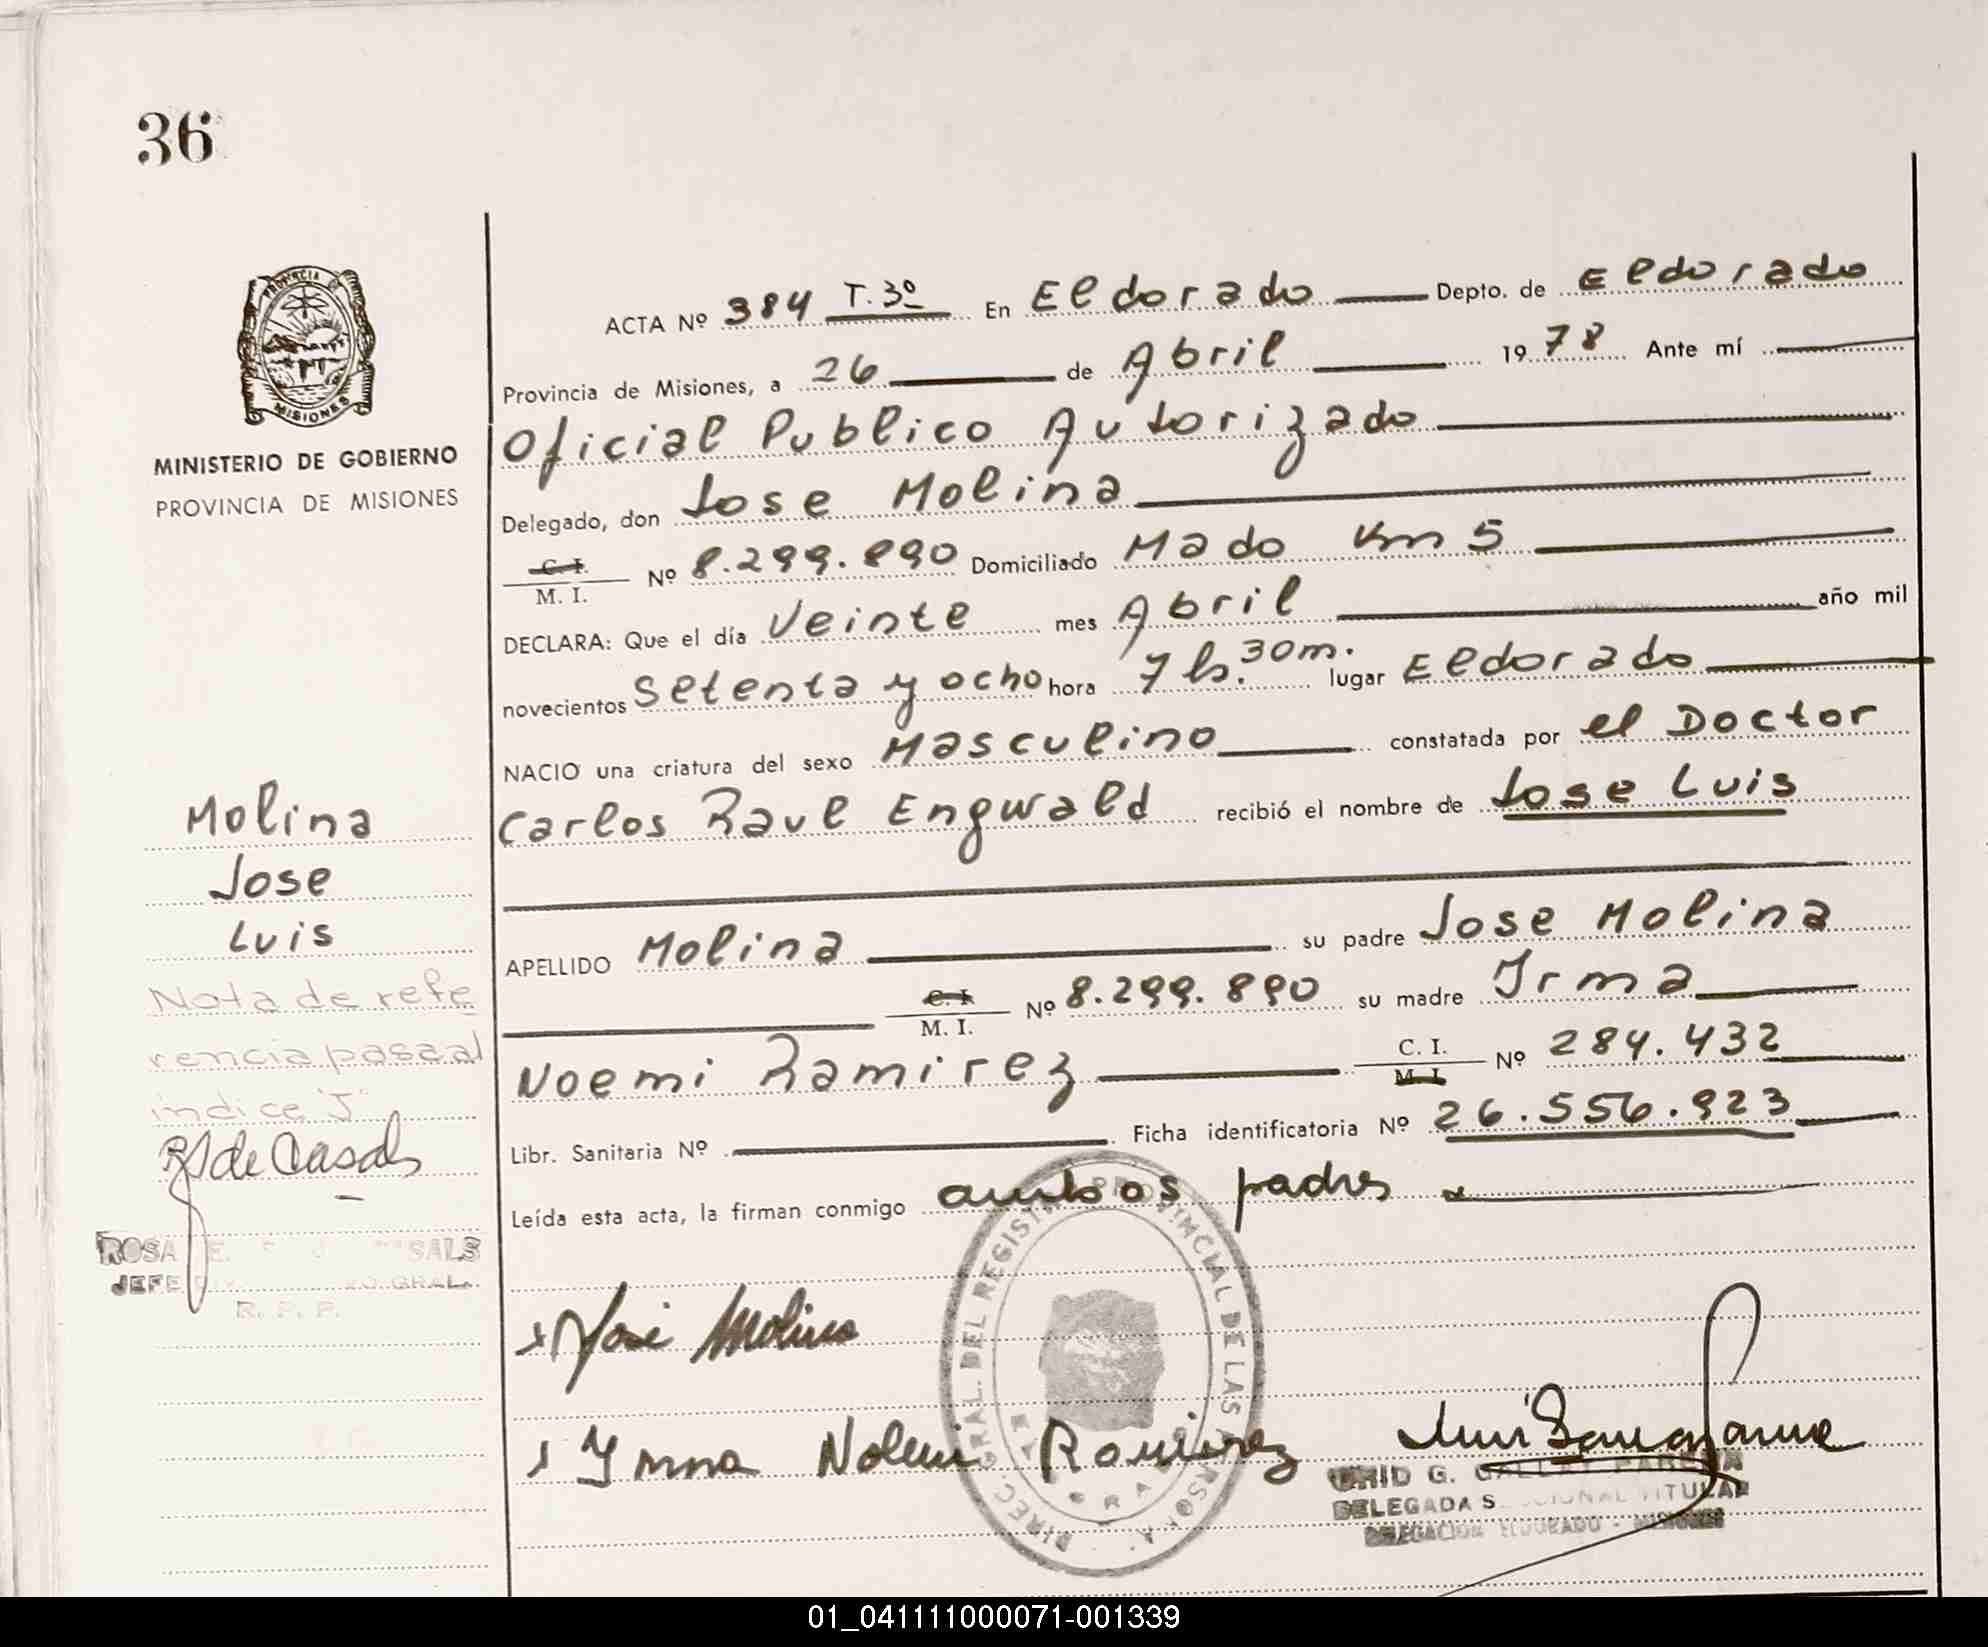 36
PROVINCIA
MISIONES
MINISTERIO DE GOBIERNO
PROVINCIA DE MISIONES
ACTA Nº 384 T. 3º En Eldorado Depto. de Eldorado
Provincia de Misiones, a 26 de Abril 1978 Ante mí
Oficial Publico Autorizado
Delegado, don Jose Molina
C. I.
M. I. Nº 8.299.890 Domiciliado Mado Km 5
DECLARA: Que el día Veinte mes Abril año mil
novecientos Setenta y ocho hora 7 hs. 30 m. lugar Eldorado
NACIO una criatura del sexo Masculino constatada por el Doctor
Carlos Raul Engwald recibió el nombre de Jose Luis
APELLIDO Molina su padre Jose Molina
C. I.
M. I. Nº 8.299.890 su madre Irma
Noemi Ramirez C. I.
M. I. Nº 284.432
Libr. Sanitaria Nº Ficha identificatoria Nº 26.556.923
Leída esta acta, la firman conmigo ambos padres
Molina
Jose
Luis
Nota de refe
rencia pasa al
indice "J"
RS de Casals
ROSA E. SALS
JEFE GRAL.
R. P. P.
José Molina
Yrma Nohemi Ramirez
DIREC. GRAL. DEL REGISTRO PROVINCIAL DE LAS PERSONAS
G.
DELEGADA TITULAR
DELEGACION ELDORADO - MISIONES
01_041111000071-001339